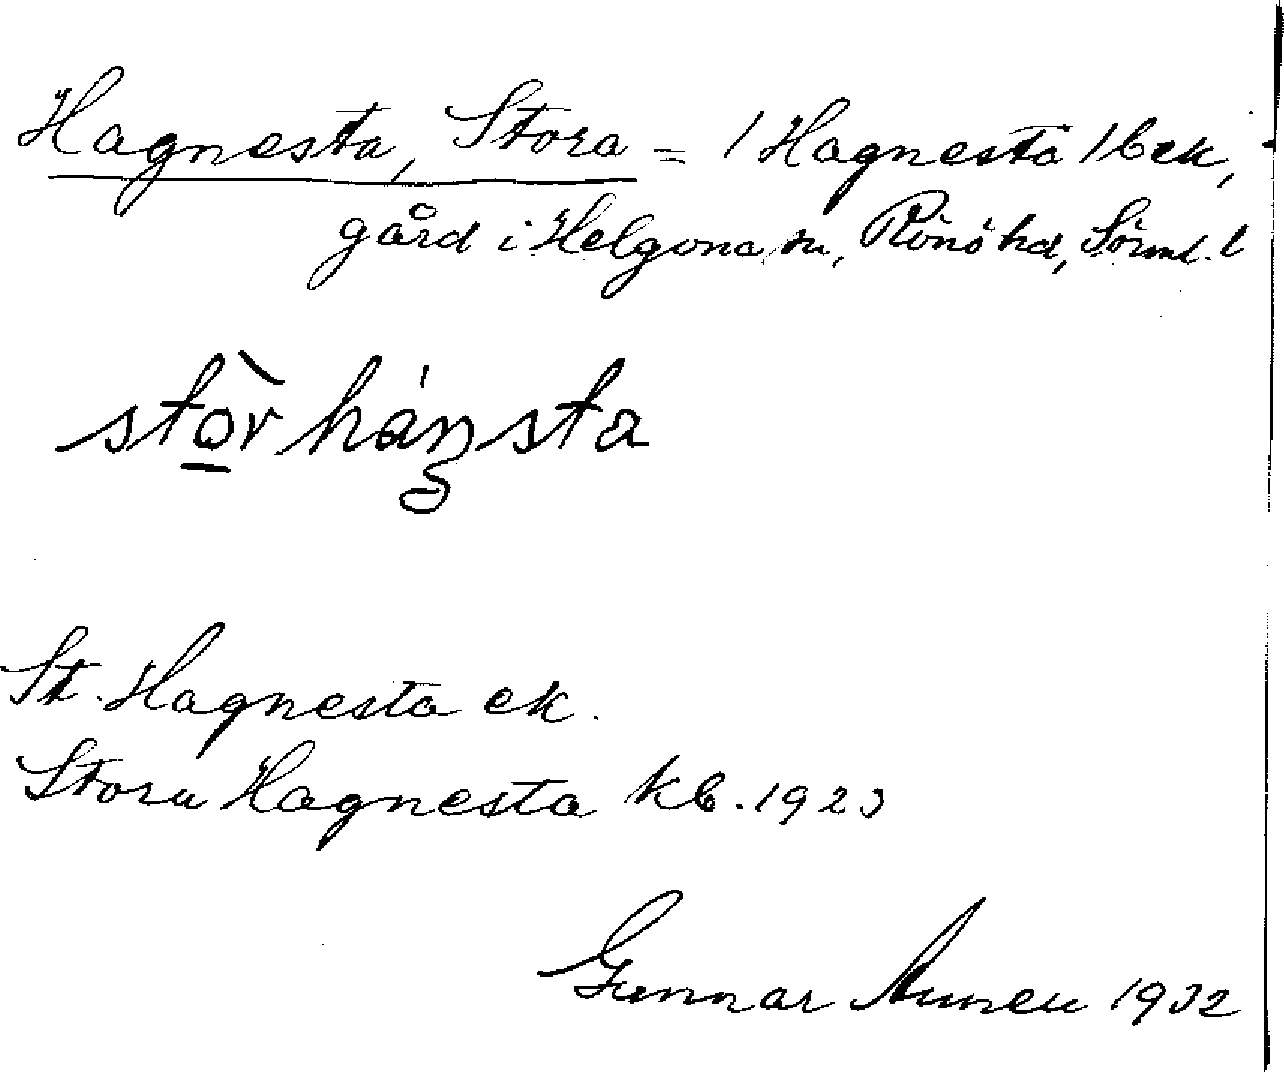 Hagnesta, Stora = 1 Hagnesta 1 bek,
gård i Helgona sn, Rönö hd, Sörml. l
stor hágsta
St. Hagnesta ek.
Stora Hagnesta kb. 1923
Gunnar 1932